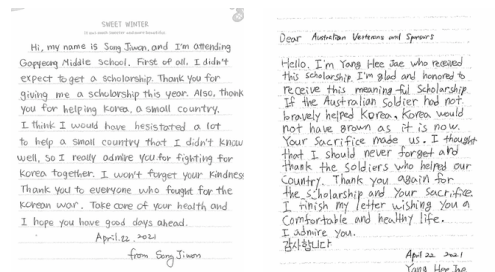 SWEET WINTER
Hi, my name is Song Jiwon, and I'm attending
Gapyeong Middle School. First of all. I didn't
expect to get a scholorship. Thank you for
giving me a scholarship this year. Also, thank
you for helping Korea, a small country.
I think I would have hesistated a lot
to help a small country that I didn't know
well, so I really admire you for fighting for
Korea together. I won't forget your kindness
Thank you to everyone who fought for the
Korean war. Take care of your health and
I hope you have good days ahead.
April. 22. 2021
from Song Jiwon
Dear Australian Veterans and Sponsors
Hello. I'm Yang Hee Jae who received
this scholarship. I'm glad and honored to
receive this meaningful Scholarship.
If the Australian Soldier had not
bravely helped Korea, Korea would
not have grown as it is now.
Your Sacrifice made us. I thought
that I should never forget and
thank the soldiers who helped our
Country. Thank you again for
the Scholarship and Your Sacrifice.
I finish my letter wishing you a
Comfortable and healthy life.
I admire you.
감사합니다
April 22. 2021
Yang Hee Jae